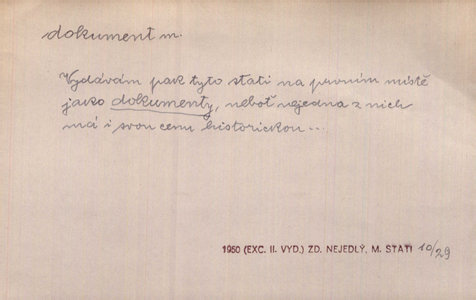 dokument m.
Vydávám pak tyto stati na prvním místě
jako dokumenty, neboť nejedna z nich
má i svou cenu historickou...
1950 (EXC. II. VYD.) ZD. NEJEDLÝ, M. STATI 10/29